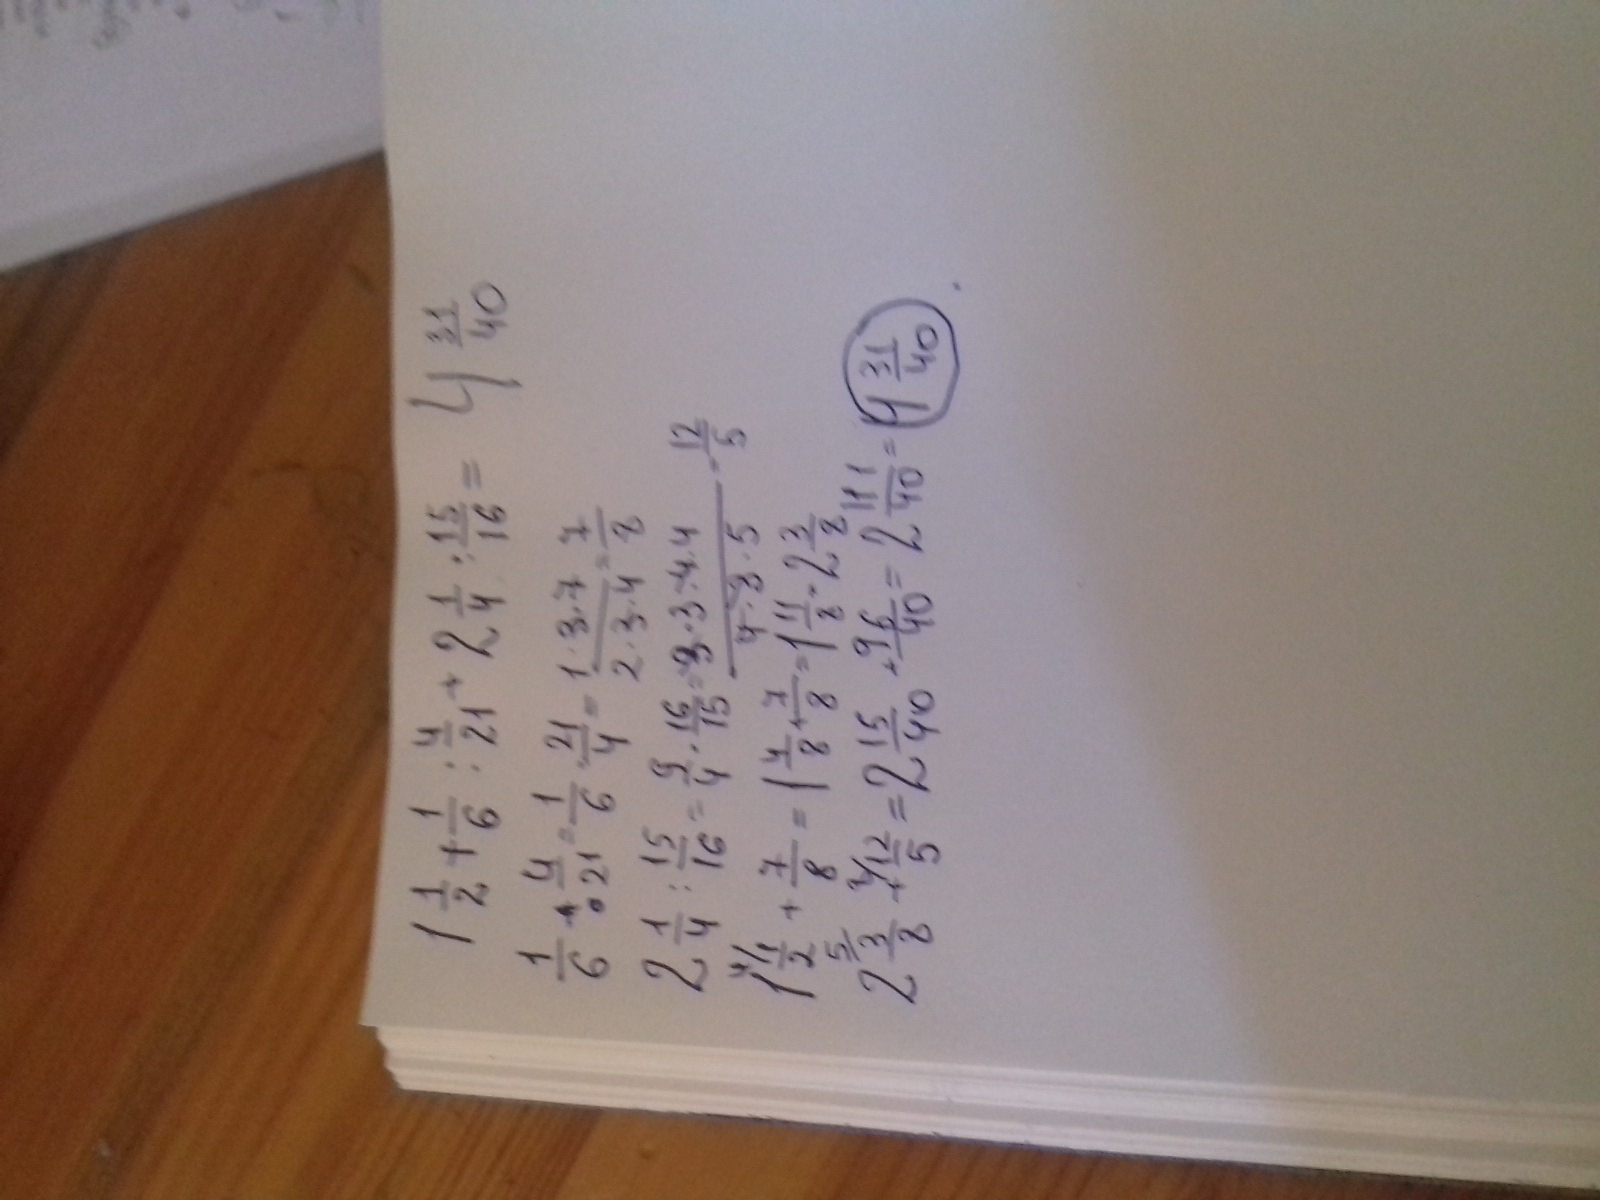 1 1/2 + 1/6 : 4/21 + 2 1/4 : 15/16 = 4 31/40
1/6 : 4/21 = 1/6 · 21/4 = 1·3·7/2·3·4 = 7/8
2 1/4 : 15/16 = 9/4 · 16/15 = 3·3·4·4/4·3·5 = 12/5
1 1/2 + 7/8 = 1 4/8 + 7/8 = 1 11/8 = 2 3/8
2 3/8 + 12/5 = 2 15/40 + 96/40 = 2 111/40 = 4 31/40